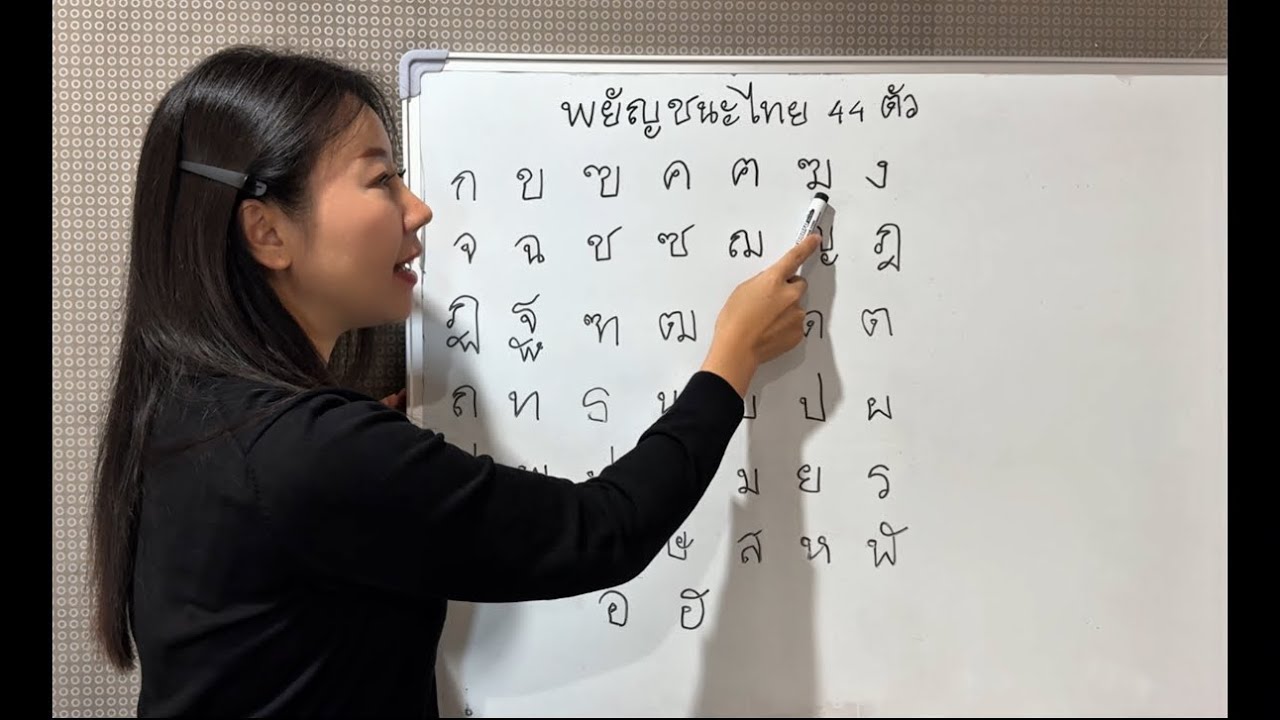 พยัญชนะไทย 44 ตัว
ก ข ฃ ค ฅ ฆ ง
จ ฉ ช ซ ฌ ญ ฎ
ฏ ฐ ฑ ฒ ด ต
ถ ท ธ น บ ป ผ
ม ย ร
ษ ส ห ฬ
อ ฮ